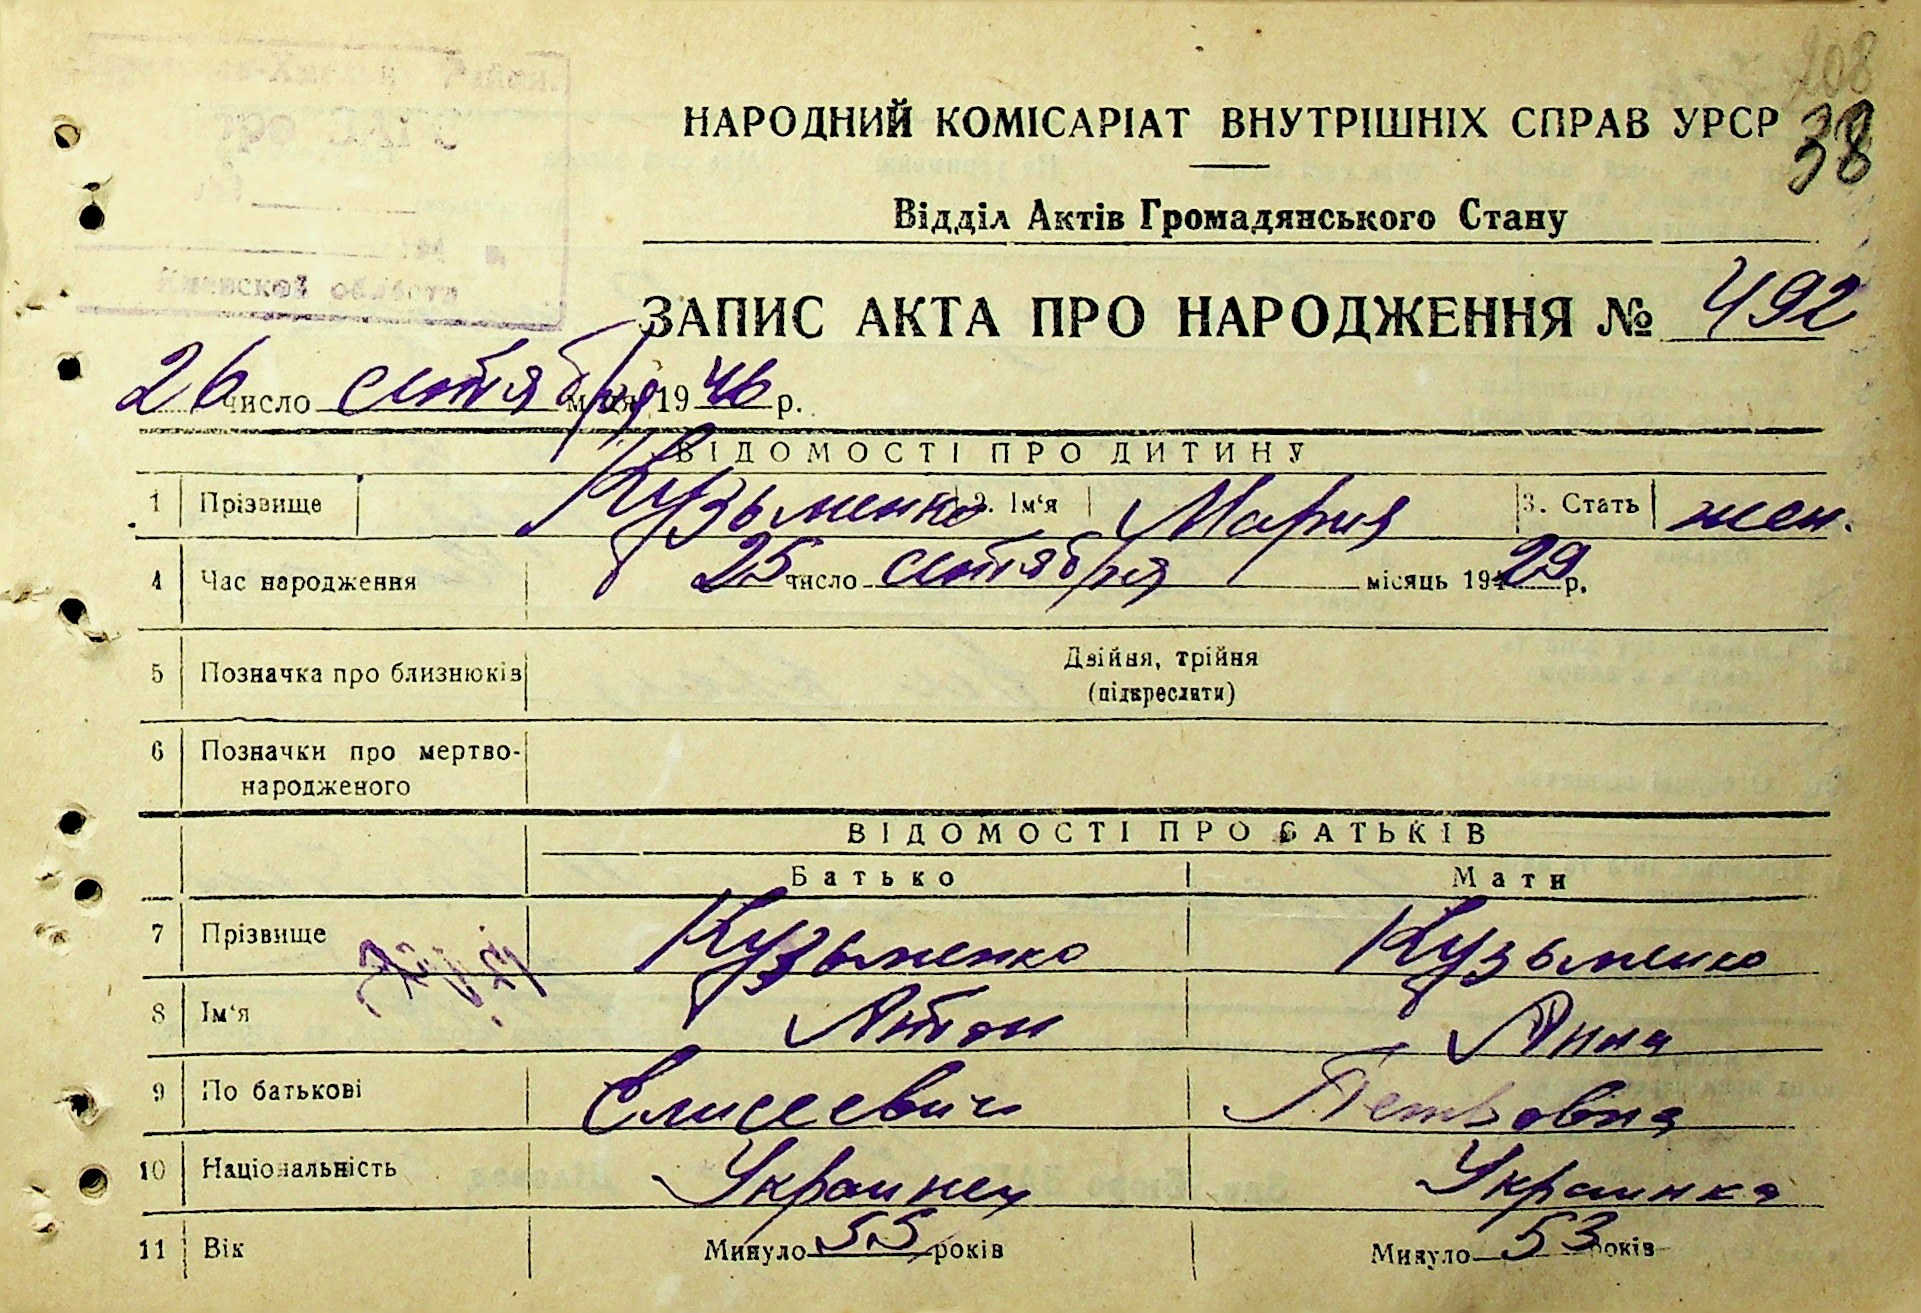 208
38
НАРОДНИЙ КОМІСАРІАТ ВНУТРІШНІХ СПРАВ УРСР
Відділ Актів Громадянського Стану
ЗАПИС АКТА ПРО НАРОДЖЕННЯ № 492
26 число сентября м-ця 1946 р.
ВІДОМОСТІ ПРО ДИТИНУ
1 Прізвище Кузьменко 2. Ім'я Мария 3. Стать жен.
4 Час народження 25 число сентября місяць 1929 р.
5 Позначка про близнюків Двійня, трійня
(підкреслити)
6 Позначки про мертво-
народженого
ВІДОМОСТІ ПРО БАТЬКІВ
Батько Мати
7 Прізвище Кузьменко Кузьменко
8 Ім'я Антон Анна
9 По батькові Елисеевич Петровна
10 Національність Украинец Украинка
11 Вік Минуло 55 років Минуло 53 років